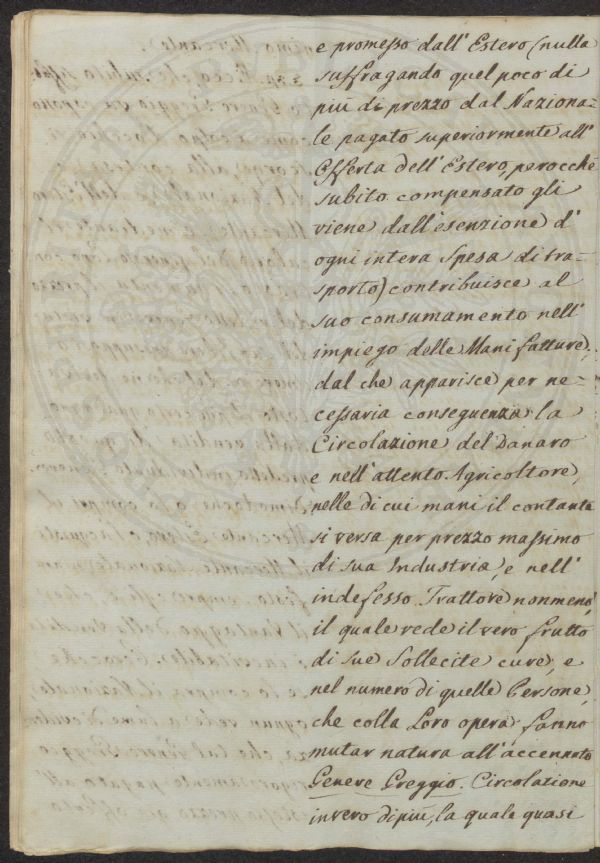 e promesso dall' Estero (nulla
suffragando quel poco di
più di prezzo dal Naziona-
le pagato superiormente all'
Offerta dell' Estero, perocchè
subito compensato gli
viene dall' esenzione d'
ogni intera Spesa di tra-
sporto) contribuisce al
suo consumamento nell'
impiego delle Manifatture;
dal che apparisce per ne-
cessaria conseguenza la
Circolazione del Danaro
e nell' attento Agricoltore,
nelle di cui mani il contante
si versa per prezzo massimo
di sua Industria, e nell'
indefesso Trattore nonmeno,
il quale vede il vero frutto
di sue Sollecite cure, e
nel numero di quelle Persone,
che colla Loro opera fanno
mutar natura all' accennato
Genere Greggio. Circolazione
invero di più, la quale quasi